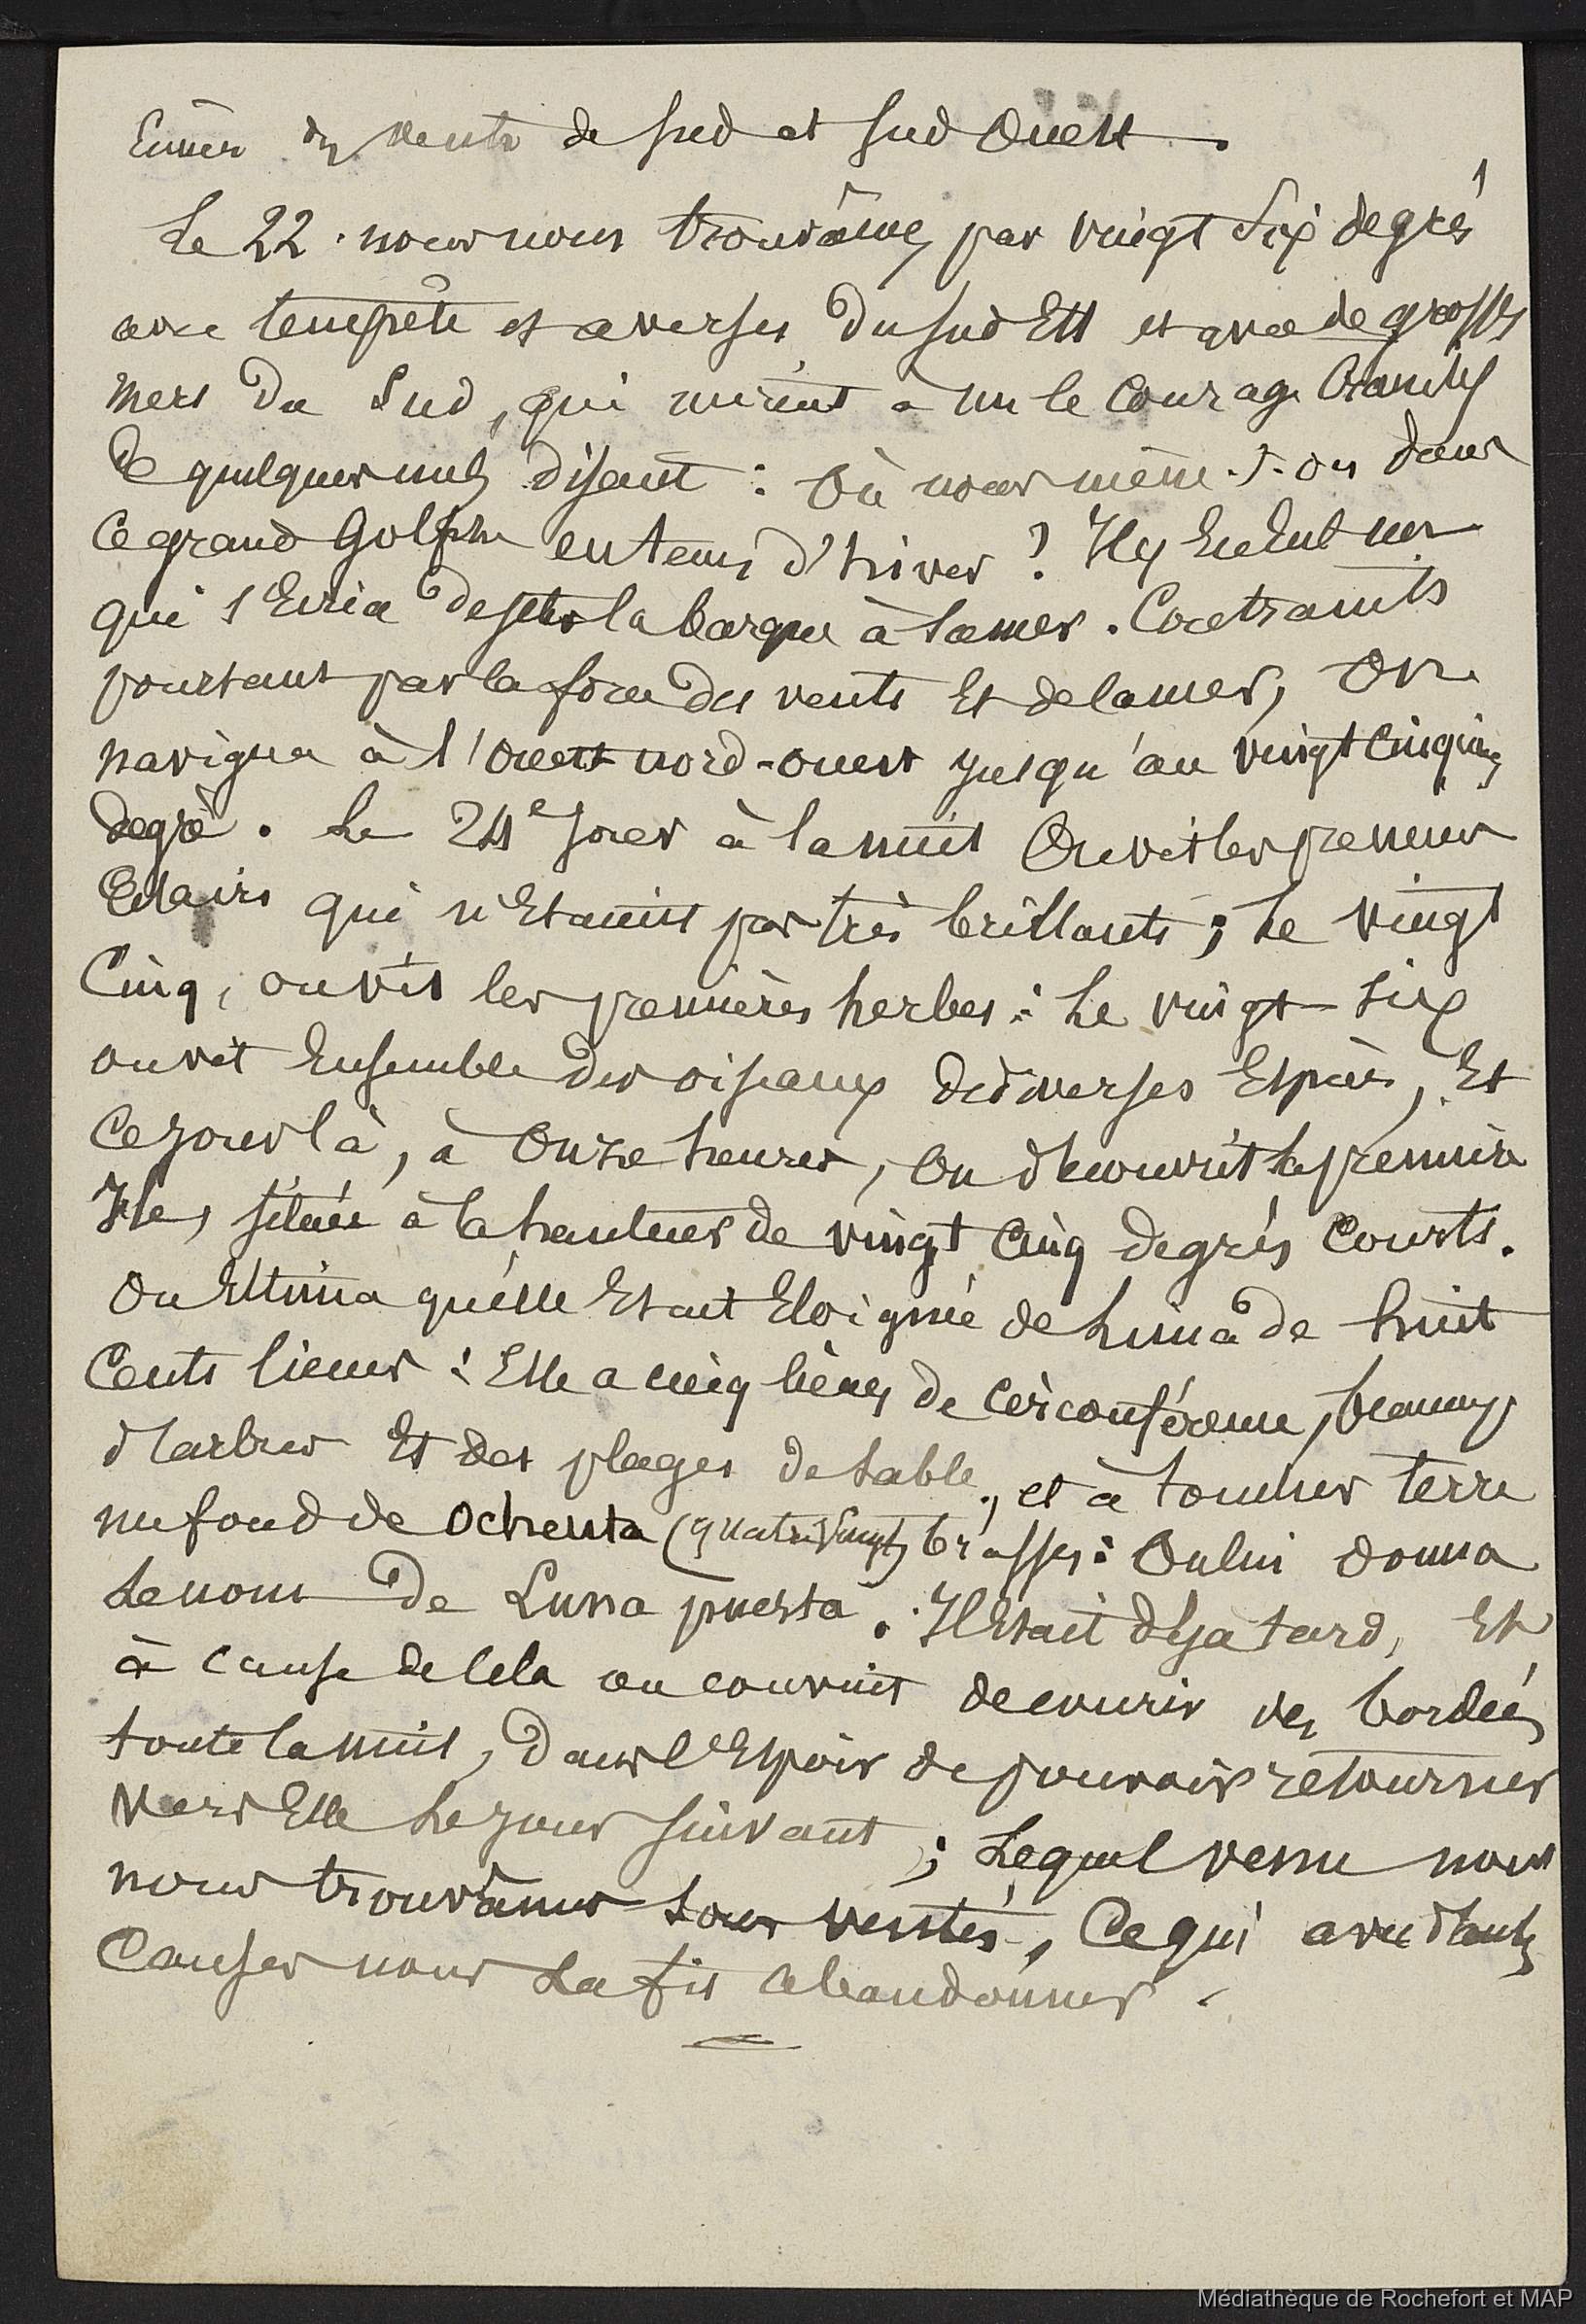 de vents de Sud et Sud Ouest.
Le 22. nous nous trouvâmes par vingt six degrés
avec tempête et averses du Sud Est et avec de grosses
mers du Sud, qui mirent à nu le courage
de quelques uns disant : Où nous mène-t-on dans
ce grand Golphe en tems d'hiver ? Il y en eut un
qui s'écria de jeter la barque à la mer. Contraints
pourtant par la force des vents et de la mer, on
navigua à l'ouest nord-ouest jusqu'au vingt cinquième
degré. Le 24e jour à la nuit on vit les premiers
Eclairs qui n'étaient pas très brillants ; le vingt
cinq, on vit les premières herbes : Le vingt six
on vit ensemble des oiseaux de diverses Espèces, Et
ce jour là, à onze heures, on découvrit la première
Ile, située à la hauteur de vingt cinq degrés courts.
On Estima qu'elle Etait Eloignée de Lima de huit
cents lieues : Elle a cinq lieues de circonférence, beaucoup
d'arbres Et des plages de sable, et à toucher terre
un fond de ochenta (quatre vingts) brasses : On lui donna
le nom de Luna puesta. Il Etait déjà tard, Et
à cause de cela on convint de courir des bordées
toute la nuit, dans l'Espoir de pouvoir retourner
vers Elle le jour suivant ; Lequel venu nous
nous trouvâmes sous ventés, Ce qui avec d'autres
causes nous la fit abandonner.
1
Médiathèque de Rochefort et MAP